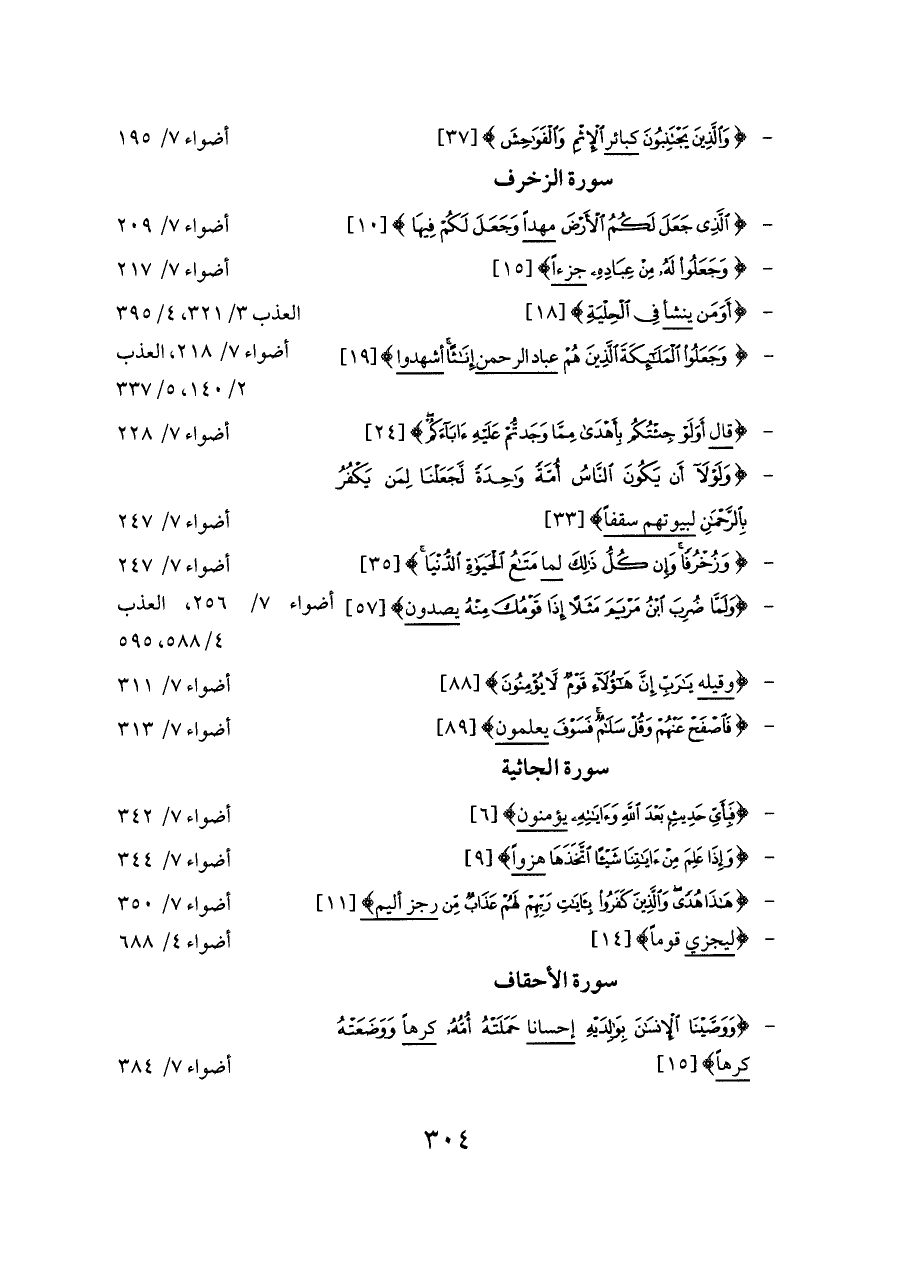 - ﴿ وَالَّذِينَ يَجْتَنِبُونَ كبائر الْإِثْمِ وَالْفَوَاحِشَ ﴾ [٣٧] أضواء ٧/ ١٩٥
سورة الزخرف
- ﴿ الَّذِي جَعَلَ لَكُمُ الْأَرْضَ مهداً وَجَعَلَ لَكُمْ فِيهَا ﴾ [١٠] أضواء ٧/ ٢٠٩
- ﴿ وَجَعَلُوا لَهُ مِنْ عِبَادِهِ جزءاً﴾ [١٥] أضواء ٧/ ٢١٧
- ﴿أَوَمَن ينشأ فِي الْحِلْيَةِ﴾ [١٨] العذب ٣/ ٣٢١، ٤/ ٣٩٥
- ﴿ وَجَعَلُوا الْمَلَٰئِكَةَ الَّذِينَ هُمْ عباد الرحمن إِنَٰثًا ۚ أشهدوا﴾ [١٩] أضواء ٧/ ٢١٨، العذب
٢/ ١٤٠، ٥/ ٣٣٧
- ﴿قال أَوَلَوْ جِئْتُكُم بِأَهْدَىٰ مِمَّا وَجَدتُّمْ عَلَيْهِ ءَابَآءَكُمْ ۖ﴾ [٢٤] أضواء ٧/ ٢٢٨
- ﴿وَلَوْلَآ أَن يَكُونَ النَّاسُ أُمَّةً وَٰحِدَةً لَّجَعَلْنَا لِمَن يَكْفُرُ
بِالرَّحْمَٰنِ لبيوتهم سقفاً﴾ [٣٣] أضواء ٧/ ٢٤٧
- ﴿ وَزُخْرُفًا ۚ وَإِن كُلُّ ذَٰلِكَ لما مَتَٰعُ الْحَيَوٰةِ الدُّنْيَا ۚ ﴾ [٣٥] أضواء ٧/ ٢٤٧
- ﴿وَلَمَّا ضُرِبَ ابْنُ مَرْيَمَ مَثَلًا إِذَا قَوْمُكَ مِنْهُ يصدون﴾ [٥٧] أضواء ٧/ ٢٥٦، العذب
٤/ ٥٨٨، ٥٩٥
- ﴿وقيله يَٰرَبِّ إِنَّ هَٰٓؤُلَآءِ قَوْمٌ لَّا يُؤْمِنُونَ﴾ [٨٨] أضواء ٧/ ٣١١
- ﴿ فَاصْفَحْ عَنْهُمْ وَقُلْ سَلَٰمٌ ۚ فَسَوْفَ يعلمون﴾ [٨٩] أضواء ٧/ ٣١٣
سورة الجاثية
- ﴿فَبِأَيِّ حَدِيثٍ بَعْدَ اللَّهِ وَءَايَٰتِهِ يؤمنون﴾ [٦] أضواء ٧/ ٣٤٢
- ﴿وَإِذَا عَلِمَ مِنْ ءَايَٰتِنَا شَيْئًا اتَّخَذَهَا هزواً﴾ [٩] أضواء ٧/ ٣٤٤
- ﴿ هَٰذَا هُدًى ۖ وَالَّذِينَ كَفَرُوا بِـَٔايَٰتِ رَبِّهِمْ لَهُمْ عَذَابٌ مِّن رجز أليم﴾ [١١] أضواء ٧/ ٣٥٠
- ﴿ليجزي قوماً﴾ [١٤] أضواء ٤/ ٦٨٨
سورة الأحقاف
- ﴿وَوَصَّيْنَا الْإِنسَٰنَ بِوَٰلِدَيْهِ إحسانا حَمَلَتْهُ أُمُّهُ كرهاً وَوَضَعَتْهُ
كرهاً﴾ [١٥] أضواء ٧/ ٣٨٤
٣٠٤